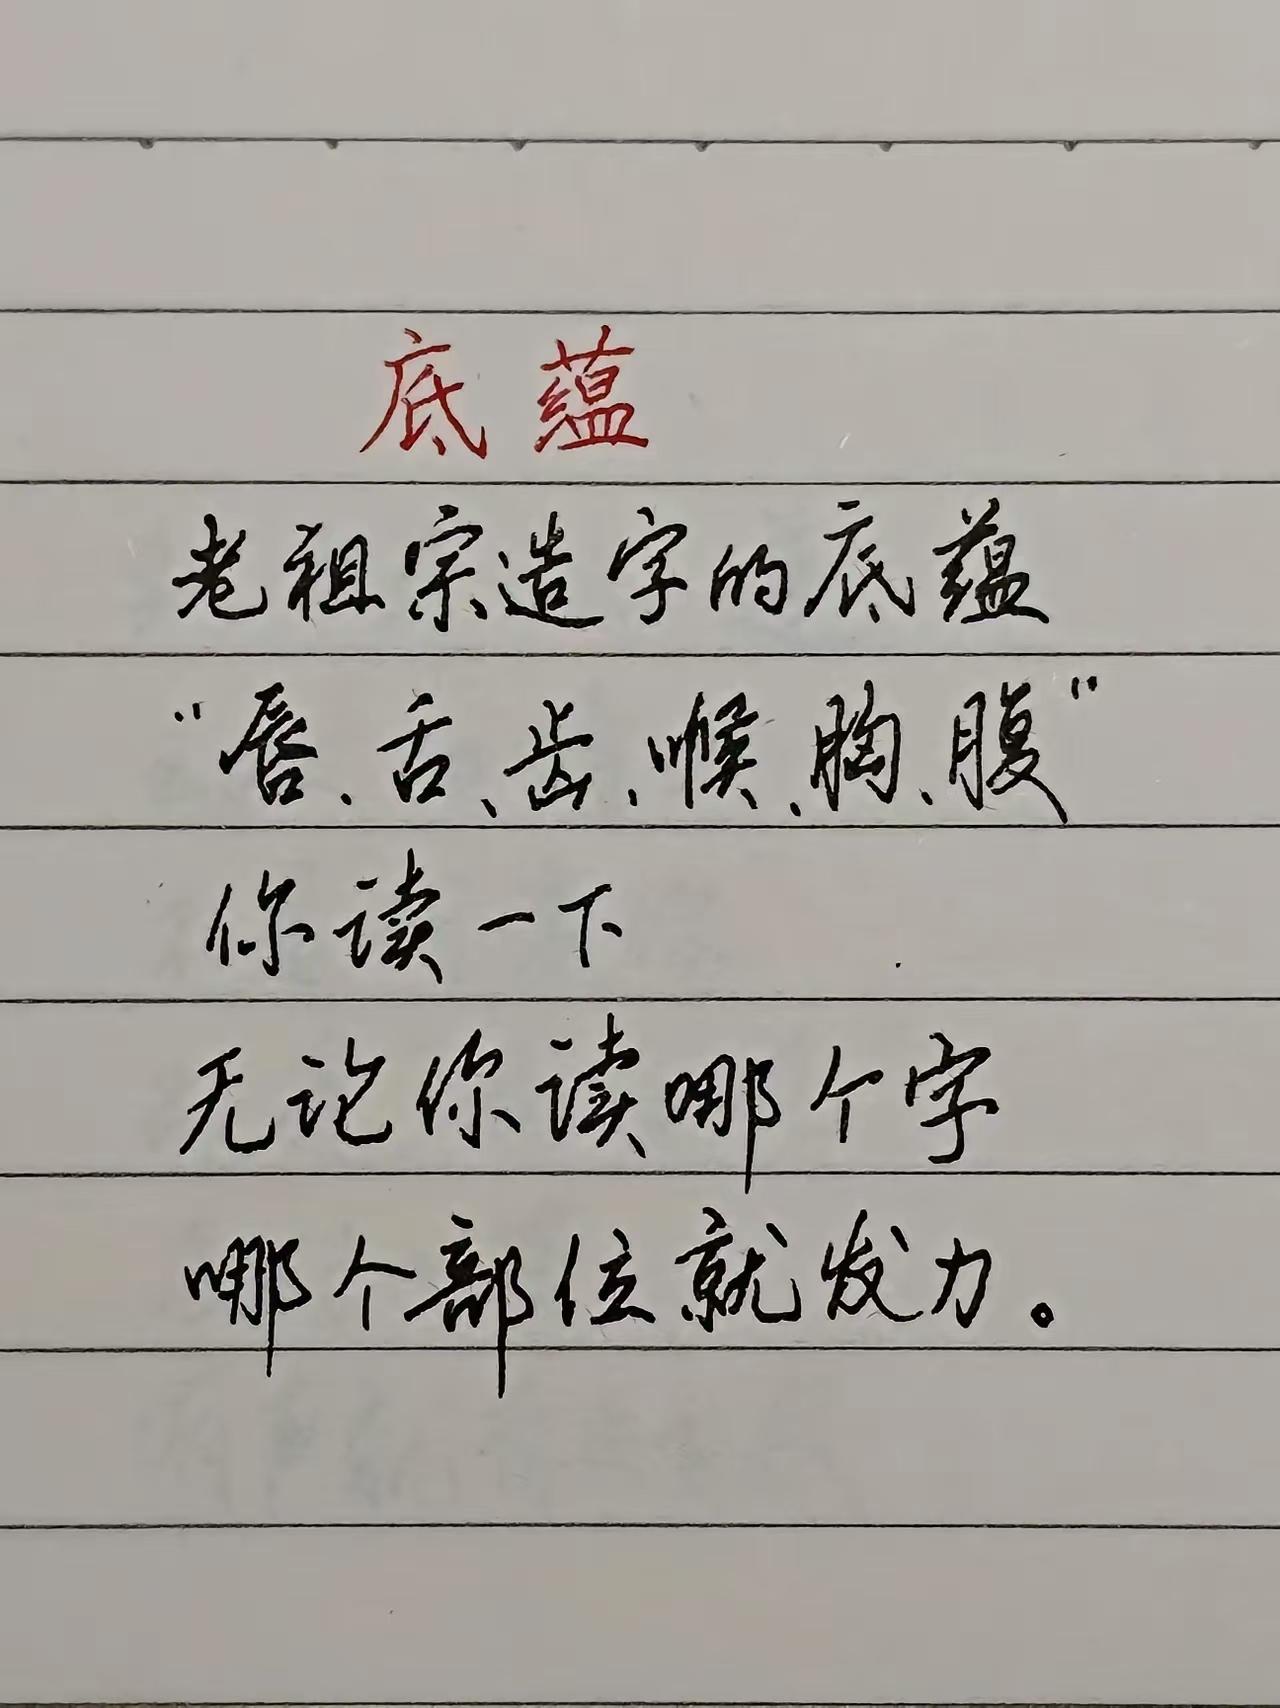 底蕴
老祖宗造字的底蕴
“唇、舌、齿、喉、胸、腹”
你读一下
无论你读哪个字
哪个部位就发力。